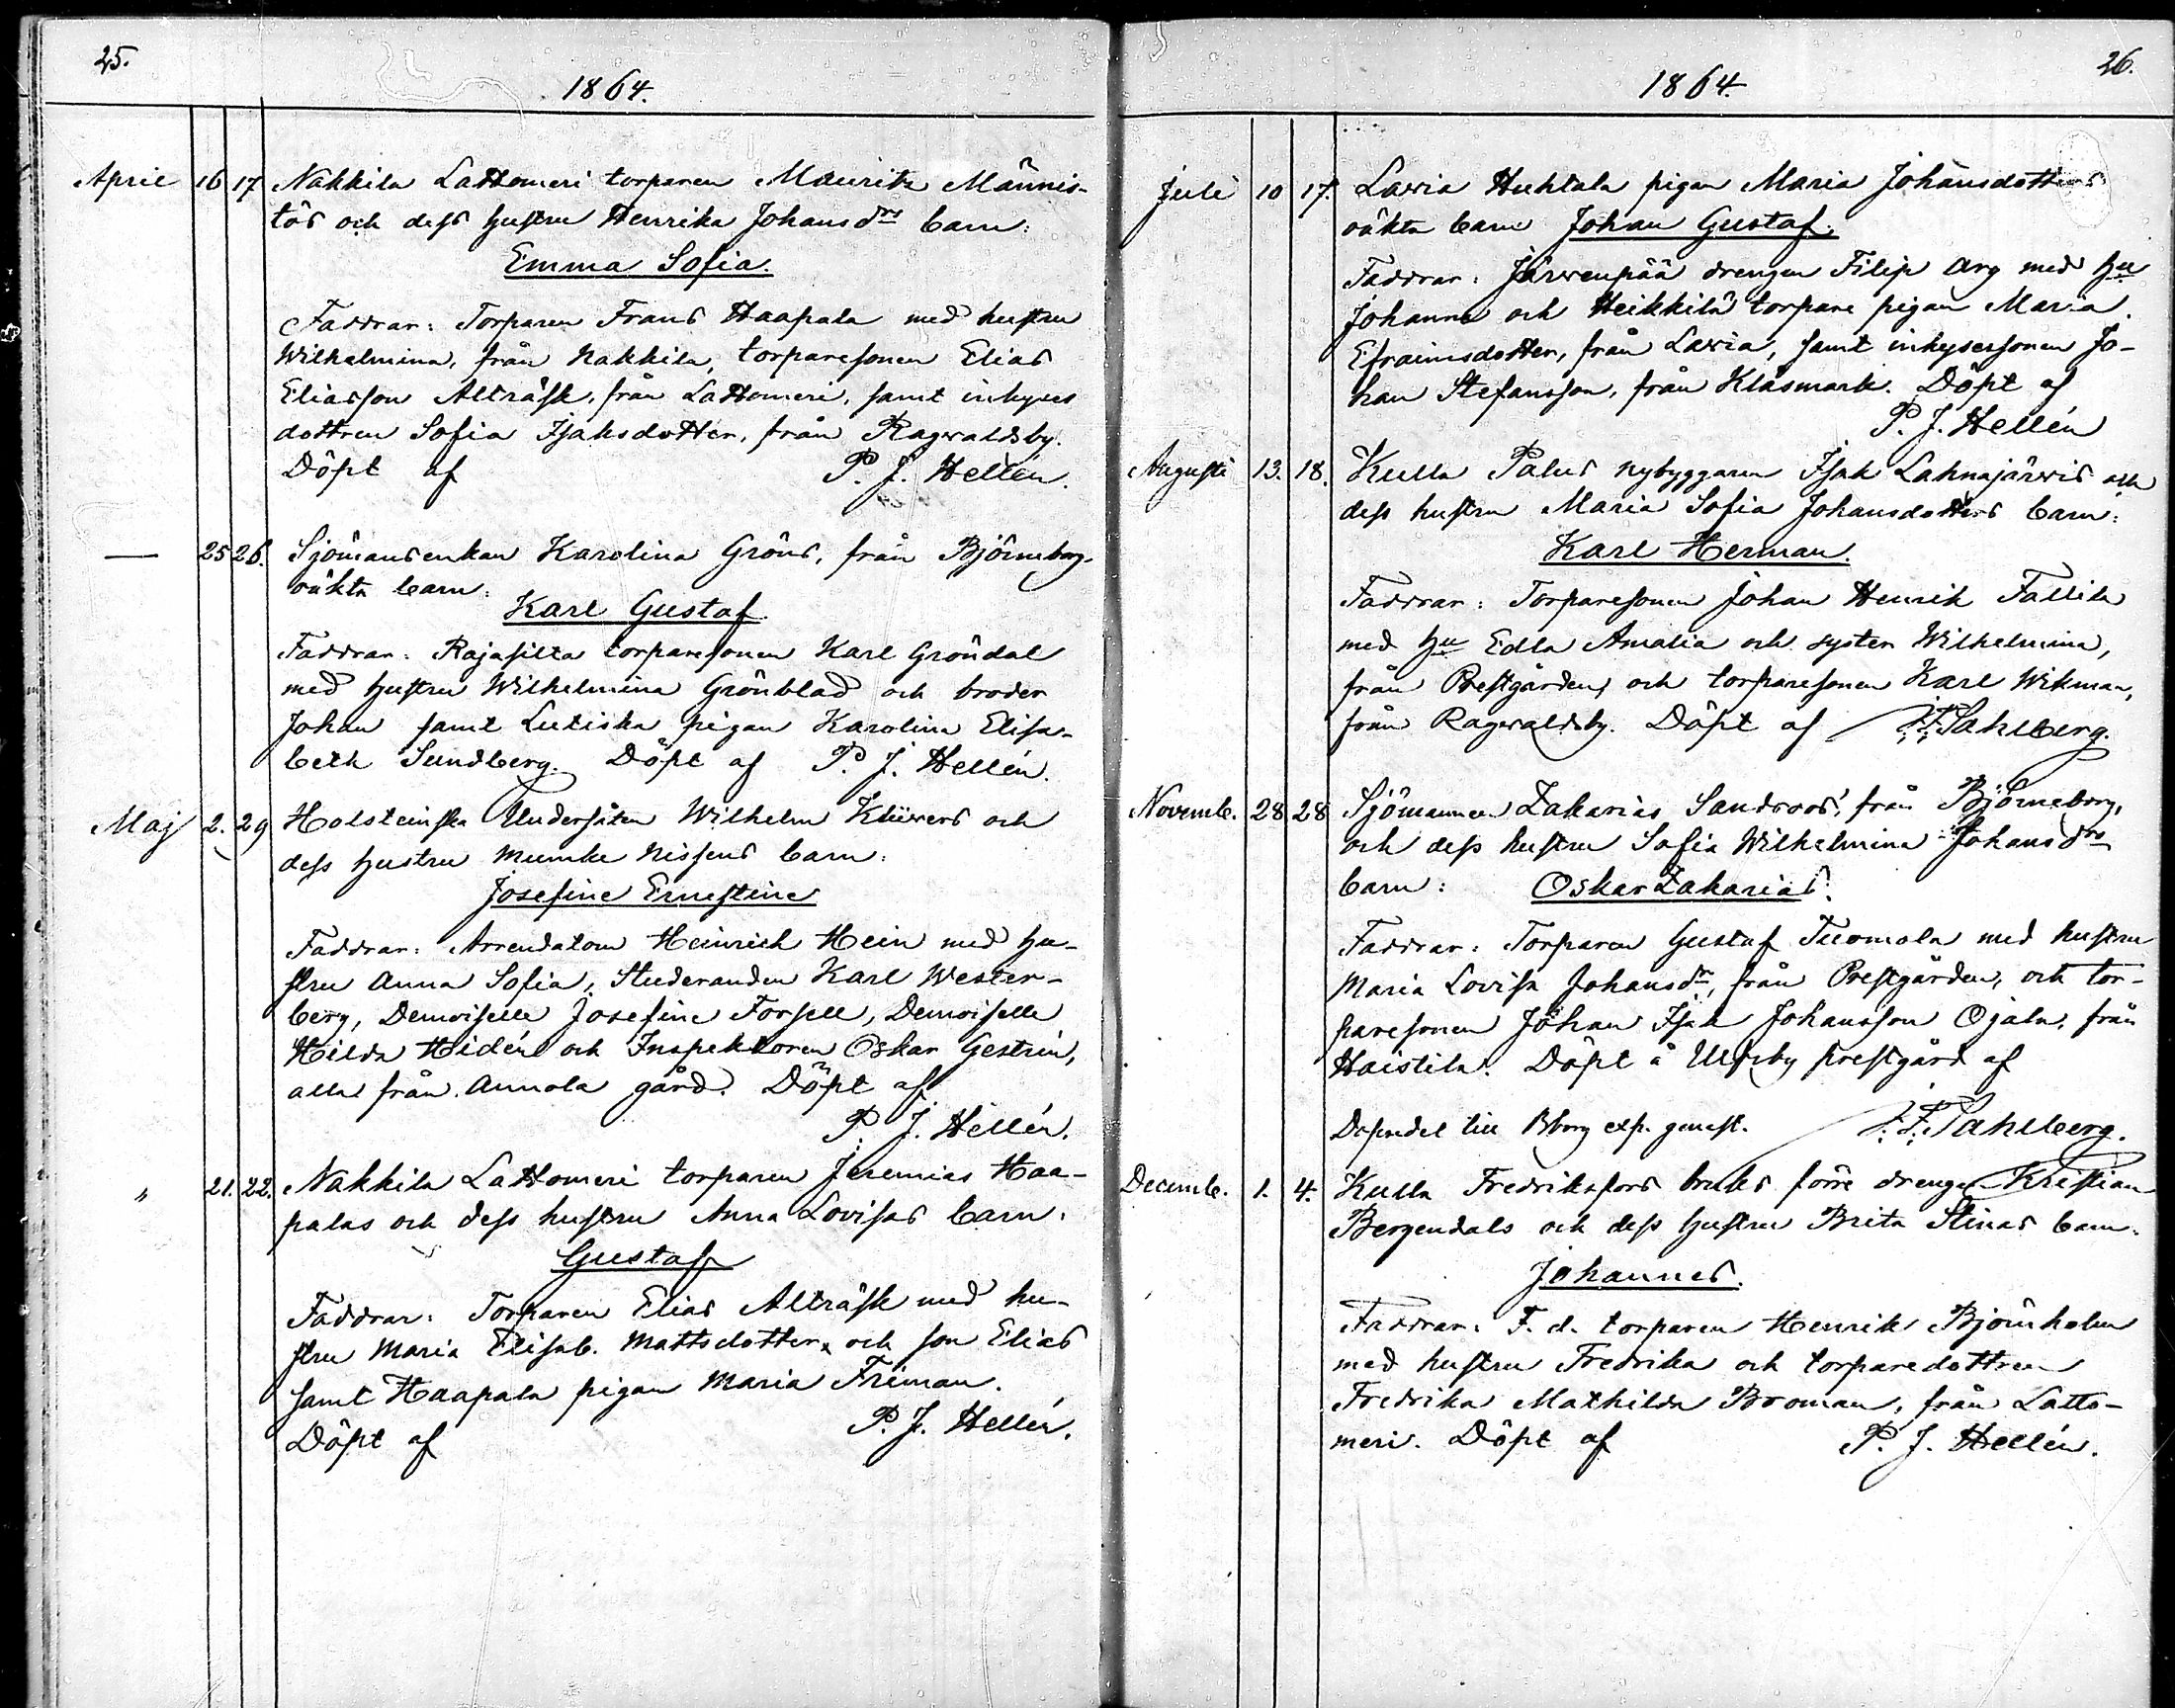 25.
1864.
April 16 17 Nakkila Lattomeri torparen Mauritz Männis-
tös och dess hustru Henrika Johansdrs barn:
Emma Sofia.
Faddrar: Torparen Frans Haapala med hustru
Wilhelmina, från Nakkila, torparesonen Elias
Eliasson Alträsk, från Lattomeri, samt inhyses
dottren Sofia Isaksdotter, från Ragvaldsby.
Döpt af P. J. Hellén.
— 25 26. Sjömansenkan Karolina Gröns, från Björneborg,
oäkta barn:
Karl Gustaf.
Faddrar: Rajasilta torparesonen Karl Gröndal
med hustru Wilhelmina Grönblad och broder
Johan samt Lutiska pigan Karolina Elisa-
beth Sundberg. Döpt af P. J. Hellén.
Maj 2. 29 Holsteinska Undersåten Wilhelm Klüvers och
dess hustru Mumke Nissens barn:
Josefine Ernestine
Faddrar: Arrendatorn Heinrich Hein med hu-
stru Anna Sofia, Studeranden Karl Wester-
berg, Demoiselle Josefine Forsell, Demoiselle
Hilda Hidén och Inspektoren Oskar Gestrin,
alla från Annola gård. Döpt af
P. J. Hellén.
" 21. 22. Nakkila Lattomeri torparen Jeremias Haa-
palas och dess hustru Anna Lovisas barn:
Gustaf
Faddrar: Torparen Elias Alträsk med hu-
stru Maria Elisab. Mattsdotter, och son Elias
samt Haapala pigan Maria Friman.
Döpt af P. J. Hellén.
26.
1864.
Juli 10 17. Lavia Huhtala pigan Maria Johansdotters
oäkta barn Johan Gustaf.
Faddrar: Järvenpää drengen Filip Arg med hu
Johanna och Heikkilä torpare pigan Maria
Efraimsdotter, från Lavia, samt inhysessonen Jo-
han Stefansson, från Klåsmark. Döpt af
P. J. Hellén
Augusti 13. 18. Kulla Palus nybyggaren Isak Lahnajärvis och
dess hustru Maria Sofia Johansdotters barn:
Karl Herman.
Faddrar: Torparesonen Johan Henrik Fallila
med hu Edla Amalia och syster Wilhelmina,
från Prestgården, och torparesonen Karl Wikman,
från Ragvaldsby. Döpt af F. F. Sahlberg.
Novemb. 28 28 Sjömannen Zakarias Sandroos', från Björneborg,
och dess hustru Sofia Wilhelmina Johansdrs
barn: Oskar Zakarias.
Faddrar: Torparen Gustaf Tuomola med hustru
Maria Lovisa Johansdr, från Prestgården, och tor-
paresonen Johan Isak Johansson Ojala, från
Haistila. Döpt å Ulfsby prestgård af
Dopsedel till Bborg exp. genast. F. F. Sahlberg.
Decemb. 1. 4. Kulla Fredriksfors bruks förre drengen Kristian
Bergendals och dess hustru Brita Stinas barn:
Johannes.
Faddrar: F. d. torparen Henrik Björnholm
med hustru Fredrika och torparedottren
Fredrika Mathilda Broman, från Latto-
meri. Döpt af P. J. Hellén.